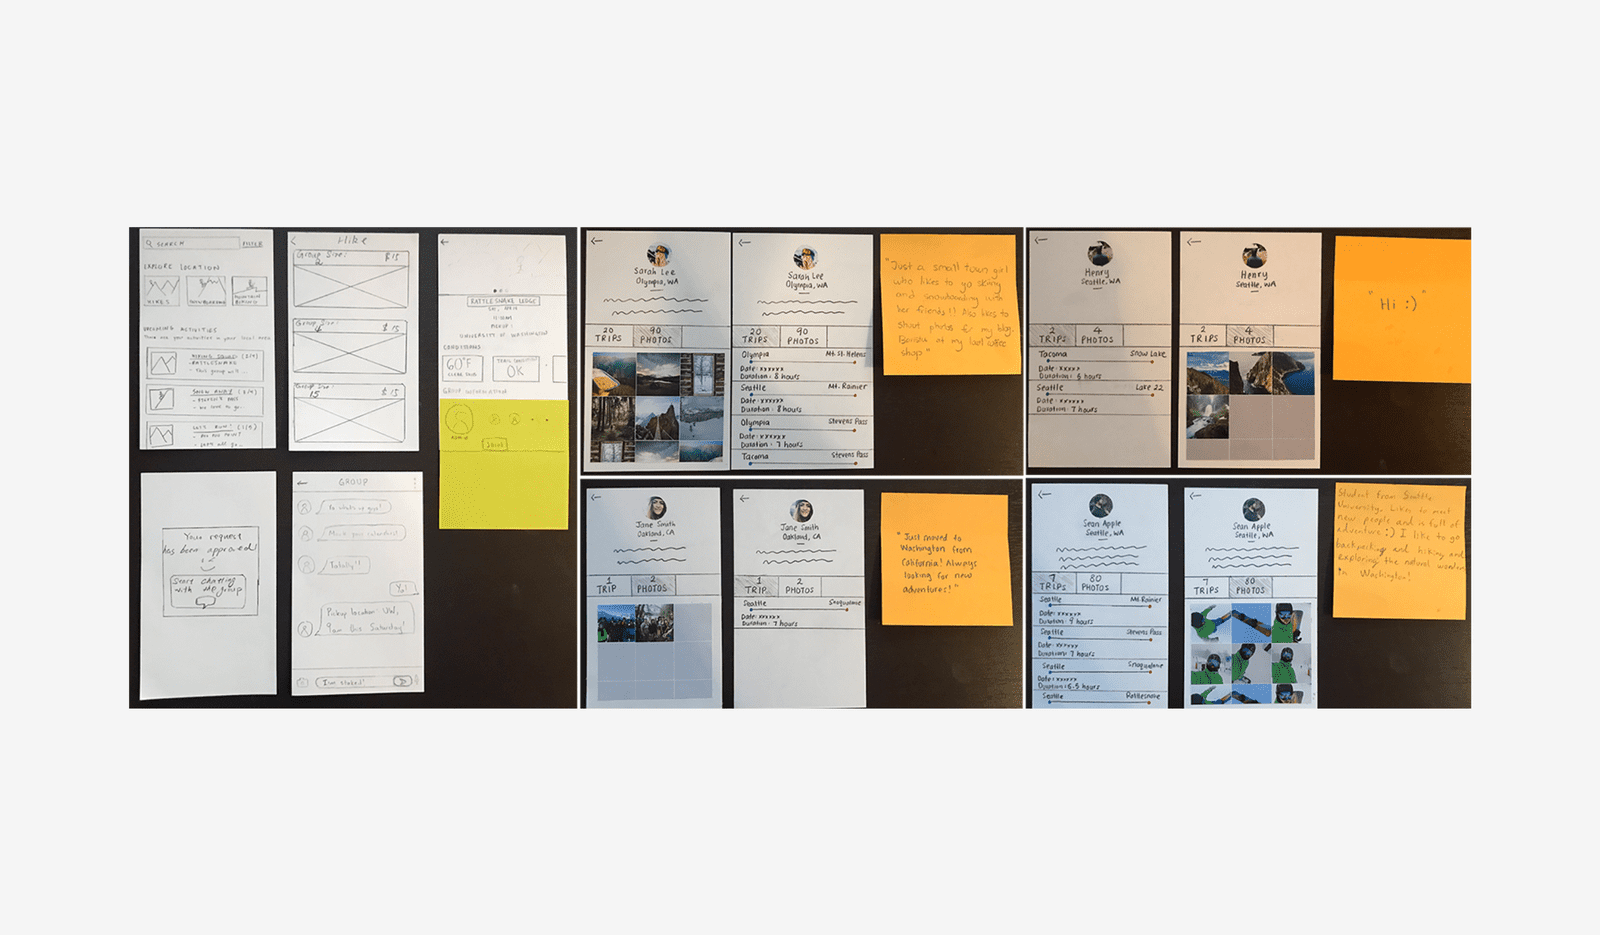 SEARCH
FILTER
EXPLORE LOCATION
HIKES
SNOWBOARDING
MOUNTAIN BIKING
UPCOMING ACTIVITIES
HIKING SQUAD! (2/4)
- RATTLESNAKE
- This group will...
(3/4)
LET'S RUN! (1/4)
- Let's will go...
Hike
Group Size:
2
$15
Group Size:
6
$15
Group Size:
15
$15
RATTLESNAKE LEDGE
PICKUP:
UNIVERSITY OF WASHINGTON
CONDITIONS
60°F
CLEAR SKIES
TRAIL CONDITIONS
OK
GROUP INFORMATION
ADMIN
JOIN!
Your request
has been approved!
Start chatting
with the group
GROUP
Totally!!
Yo!
Pickup location UW,
9am Bus. Saturday!
I'm stoked!
Sarah Lee
Olympia, WA
20
TRIPS
90
PHOTOS
Sarah Lee
Olympia, WA
20
TRIPS
90
PHOTOS
Olympia Mt. St. Helens
Date: xxxxxx
Duration: 8 hours
Seattle Mt. Rainier
Date: xxxxxx
Duration: 8 hours
Olympia Stevens Pass
Date: xxxxxx
Duration: 7 hours
Tacoma Stevens Pass
"Just a small town girl
who likes to go skiing
and snowboarding with
her friends!! Also likes to
shoot photos for my blog.
Barista at my local coffee
shop"
Henry
Seattle, WA
2
TRIPS
4
PHOTOS
Tacoma Snow Lake
Date: xxxxxx
Duration: 6 hours
Seattle Lake 22
Date: xxxxxx
Duration: 7 hours
Henry
Seattle, WA
2
TRIPS
4
PHOTOS
"Hi :)"
Jane Smith
Oakland, CA
1
TRIP
2
PHOTOS
Jane Smith
Oakland, CA
1
TRIP
2
PHOTOS
Seattle Snoqualmie
Date: xxxxxx
Duration: 7 hours
"Just moved to
Washington from
California! Always
looking for new
adventures!"
Sean Apple
Seattle, WA
7
TRIPS
80
PHOTOS
Seattle Mt. Rainier
Date: xxxxxx
Duration: 9 hours
Seattle Stevens Pass
Date: xxxxxx
Duration: 7 hours
Seattle Snoqualmie
Date: xxxxxx
Duration: 6.5 hours
Seattle Rattlesnake
Sean Apple
Seattle, WA
7
TRIPS
80
PHOTOS
Student from Seattle
University. Likes to meet
new people and is full of
adventure :) I like to go
backpacking and hiking and
exploring the natural wonders
in Washington!